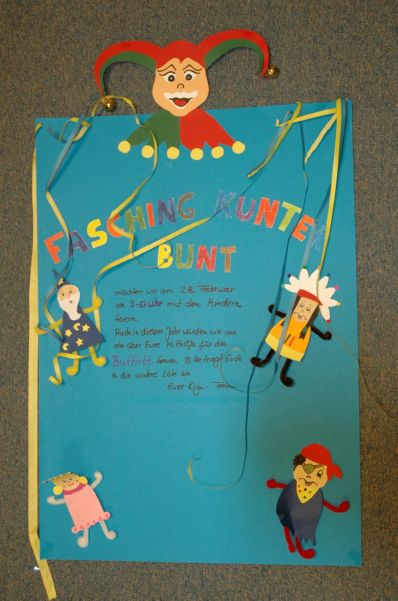 FASCHING KUNTER
BUNT
möchten wir am 28. Februar
von 9-12 Uhr mit den Kindern
feiern.
Auch in diesem Jahr würden wir uns
sehr über Eure Mithilfe für das
Buffett freuen. Bitte tragt Euch
in die untere Liste ein.
Euer Kiga-Team